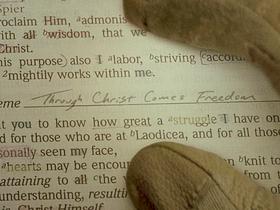 Spier
roclaim Him, ᵃadmonis
with all ᵇwisdom, that we
Christ.
is purpose also I ᵃlabor, ᵇstriving ᶜaccord
ᶻmightily works within me.
eme Through Christ Comes Freedom
t you to know how great a ᵃstruggle I have on
d for those who are at ᵇLaodicea, and for all those
sonally seen my face,
ᵃhearts may be encoura ᵇknit to
attaining to all ᶜthe from t
understanding, resultin
is Christ Himself